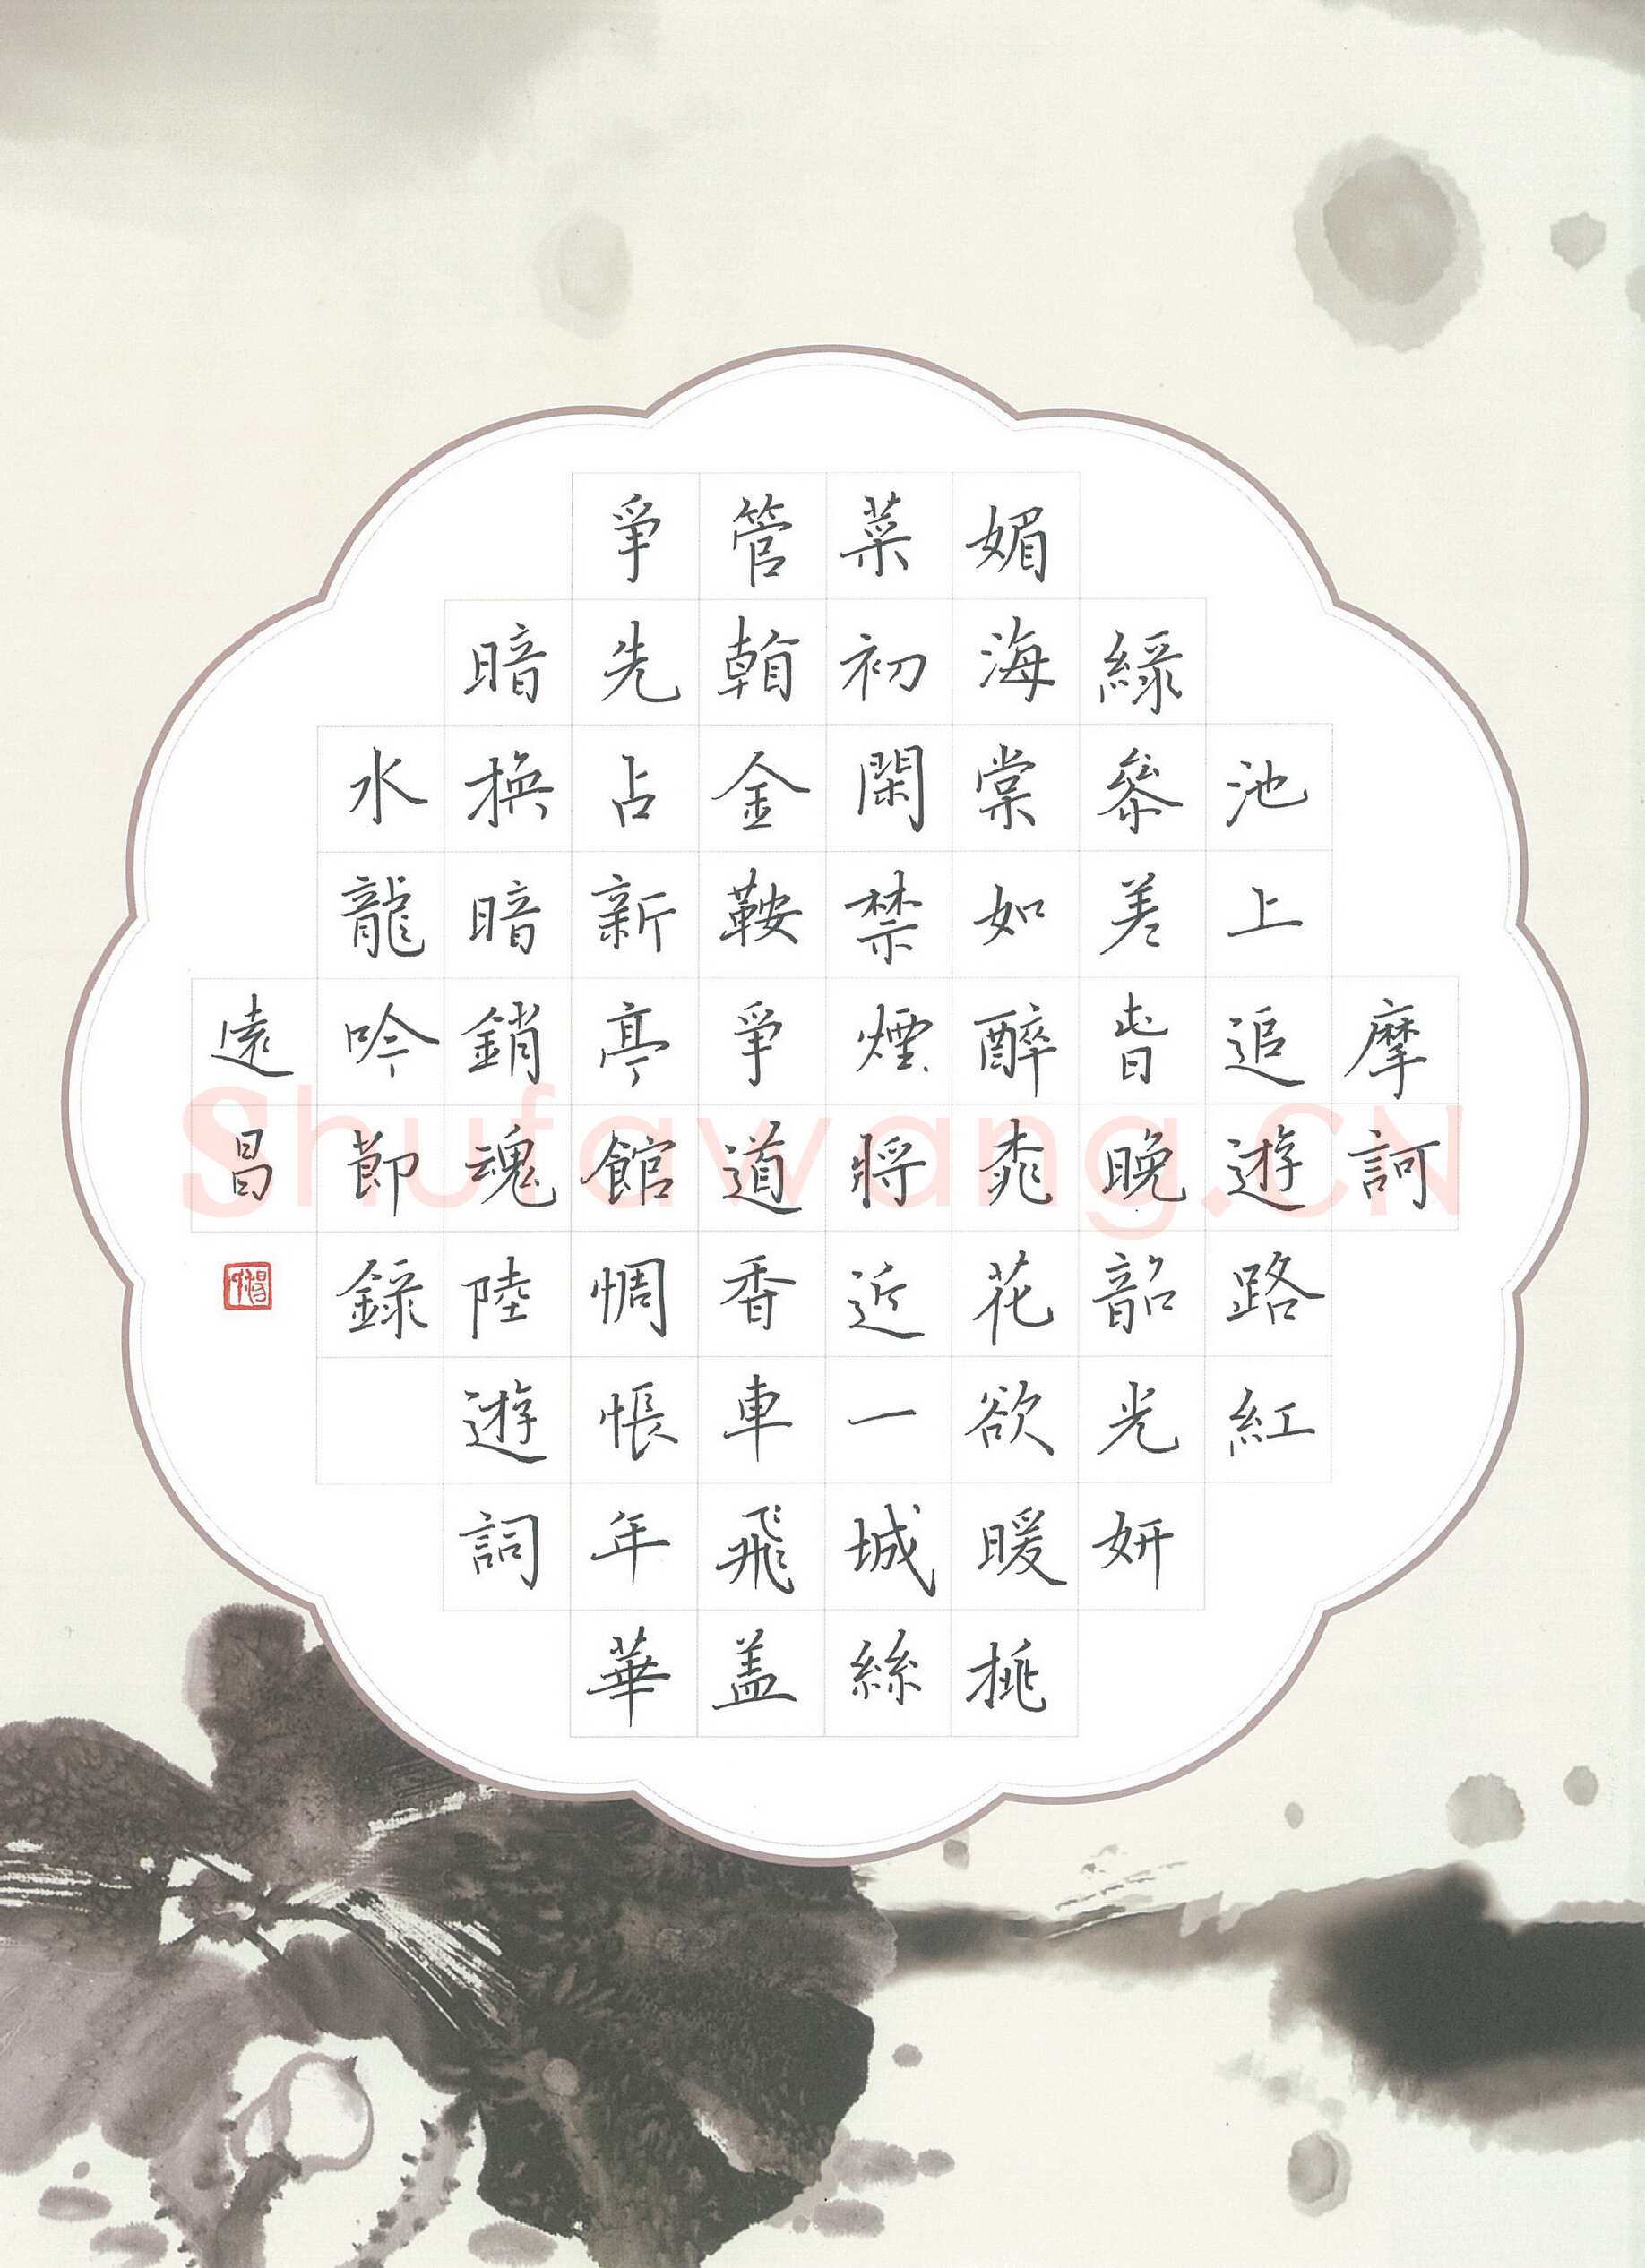 摩訶
池上追遊路紅
綠參差旹晚韶光妍
媚海棠如醉桃花欲暖挑
菜初閑禁煙將近一城絲
管看金鞍爭道香車飛盖
爭先占新亭館惆悵年華
暗換暗銷魂陸遊詞
水龍吟節錄
遠昌
Shufawang.CN